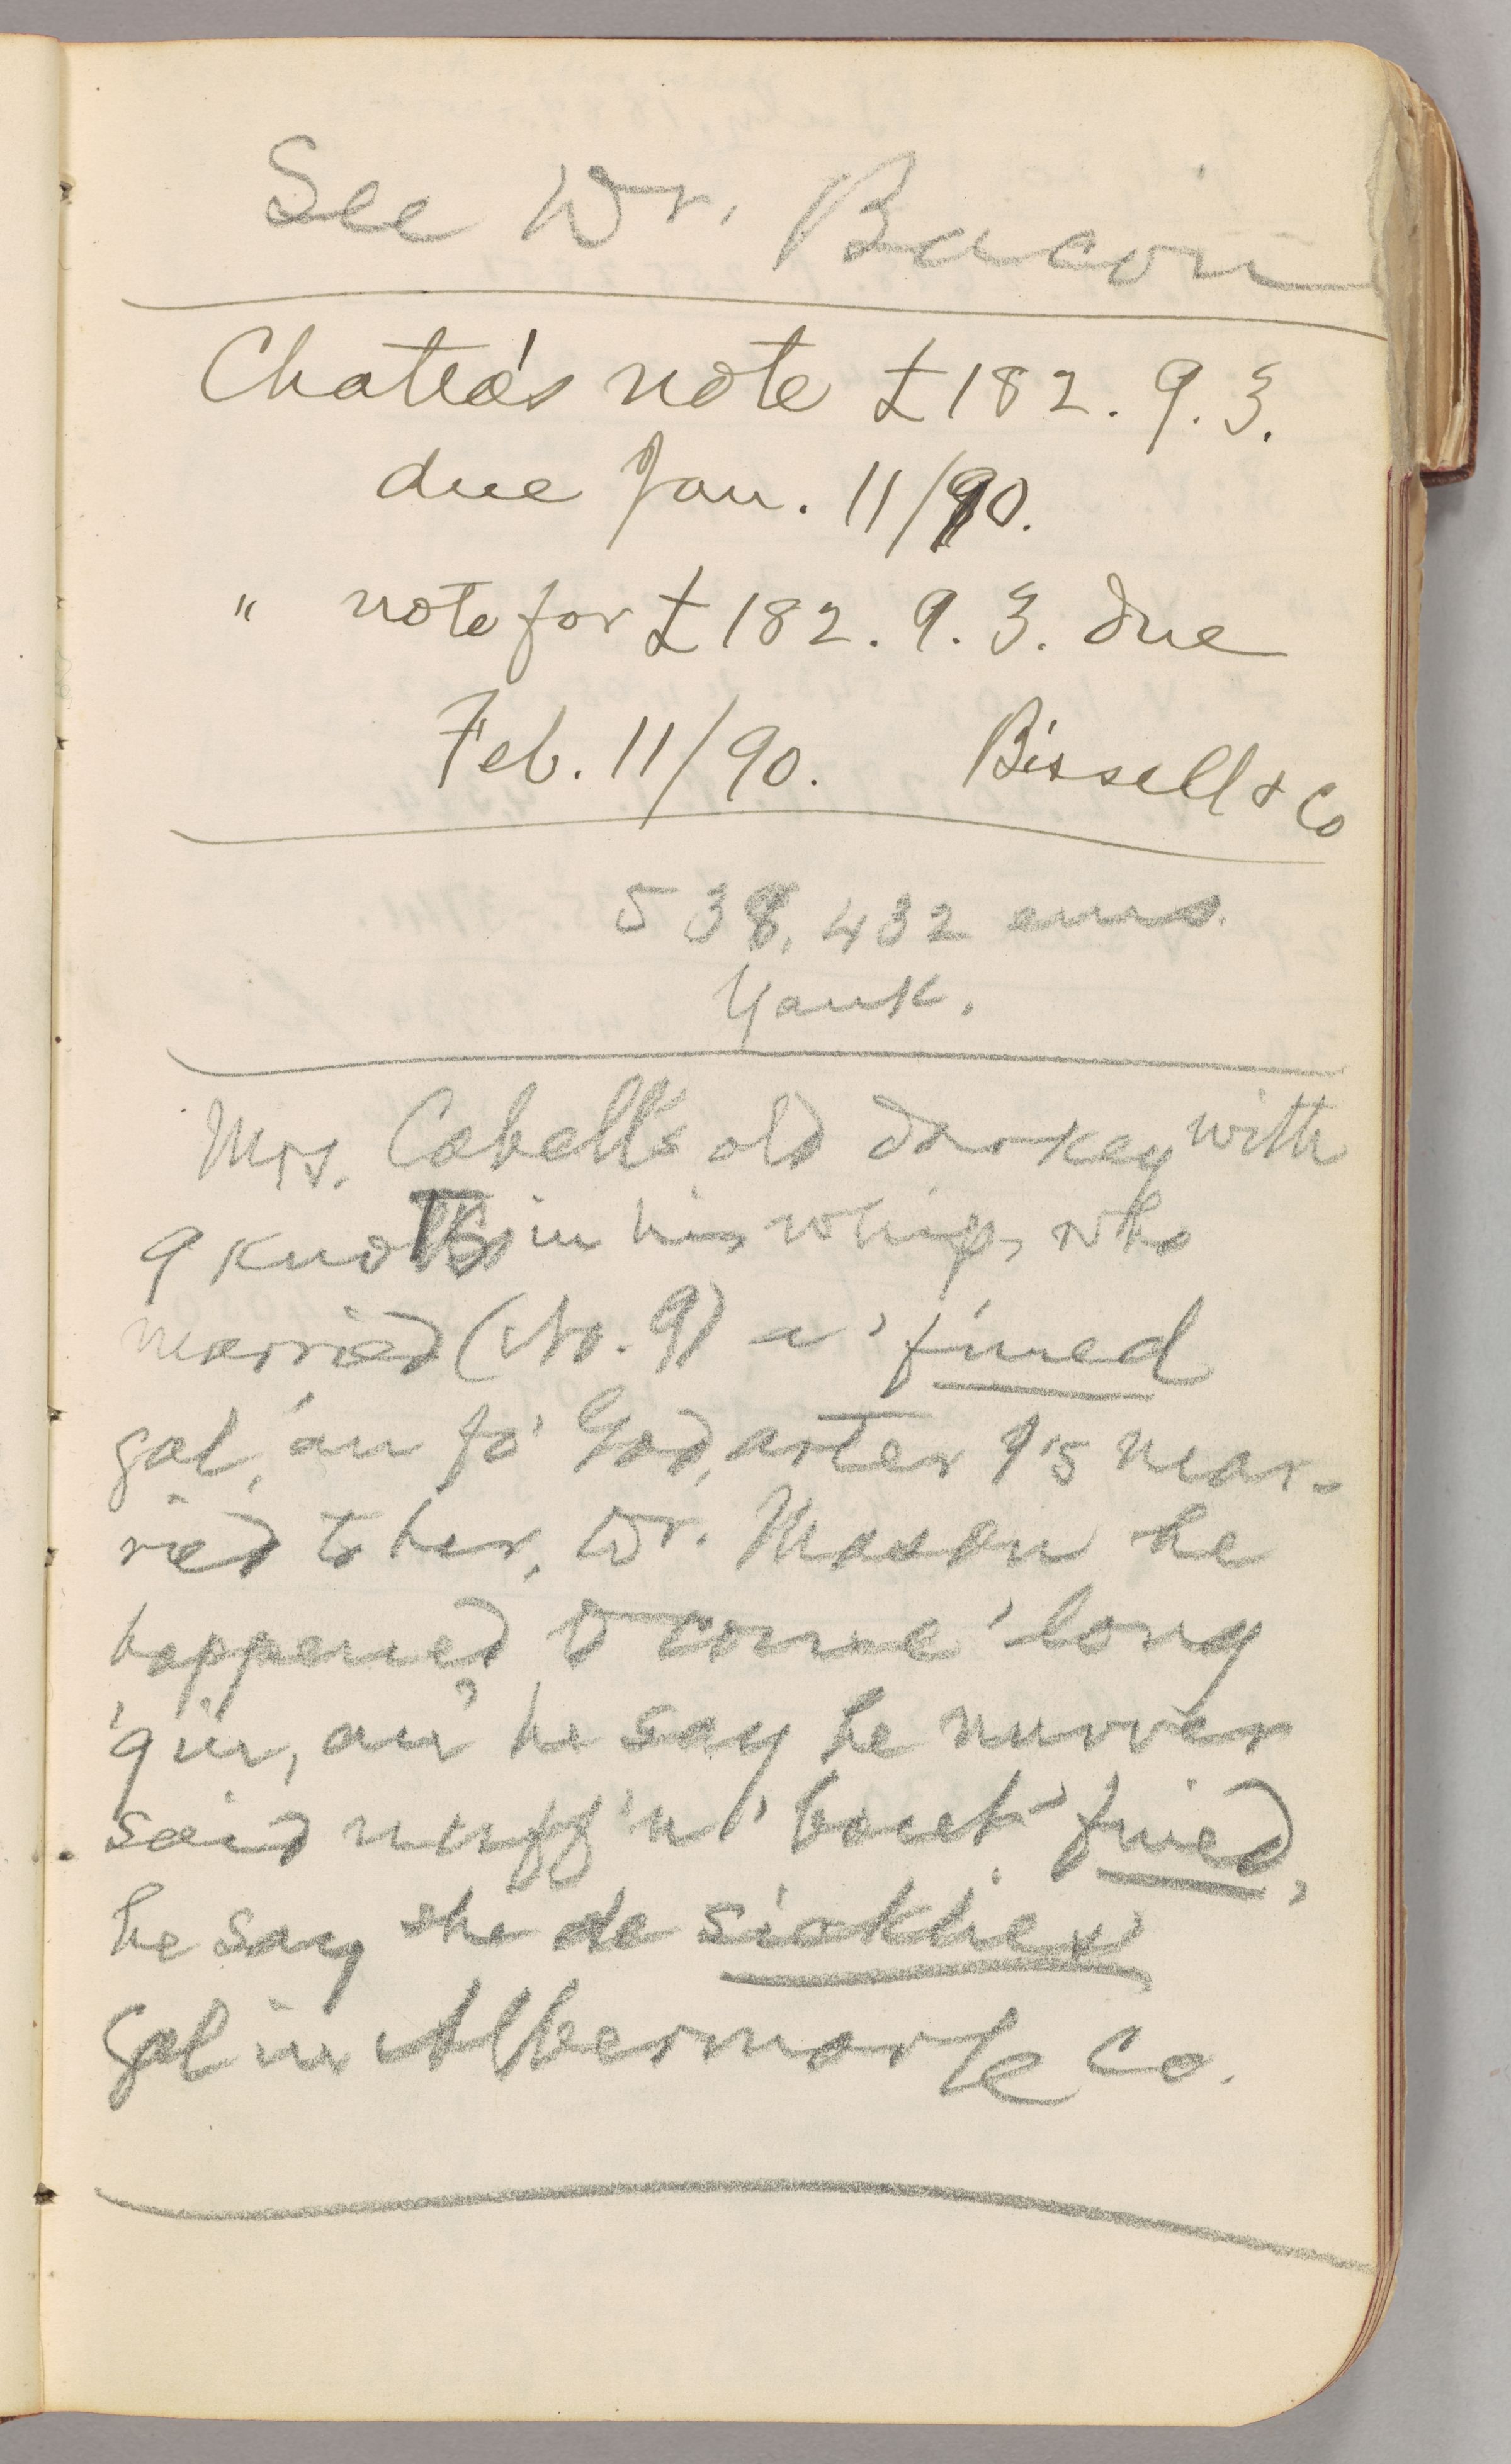 See Dr. Bacon
Chatto's note £182. 9. 3.
due Jan. 11/90.
" note for £182. 9. 3. due
Feb. 11/90. Bissell & Co
538,432 ems.
Yank.
Mrs. Cabell's old darkey with
9 knots in his whip, who
married (No. 9) a 'fined
gal, an fo' God, arter I's mar-
ried to her, Dr. Mason he
happened to come 'long
'gin, an' he say he nuvver
said nuff'n' 'bout 'fined,
he say she de sickliest
gal in Albermarle Co.